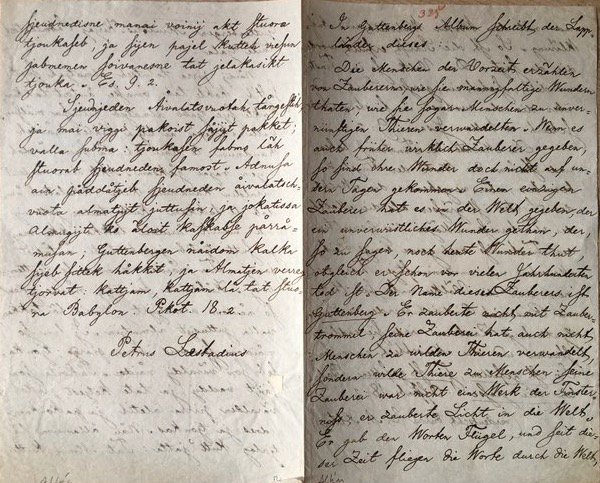 sjeudnedisne, manai voinij akt stuora
tjoukaseb, ja sijen pajel kutteh vesun
jabmemen soivanesne tat jelakasikt
tjouka. Es. 9. 2.
ja mai viggi pakoist fajgt pakket;
valla subma: tjoukasen jabmo läh
stuorab sjeudneden famost. Adnusa
ain påddåtjeb sjeudneden åivalatsch-
vuota almatjijt juttusin, ja jokatissa
Almugijt ko alost kaskabse pårrå-
majan; Guttenbergen måidom kalka
sijeb ottek håkkit, ja Almatjen verre
tjorvat: kattjam, kattjam lä tat stuo-
ra Babylon. Pikot. 18. 2.
Petrus Læstadius
325
In Guttenbergs Album schreibt der Lapp-
länder dieses:
Die Menschen der Vorzeit erzählen
von Zauberern, wie sie mannigfaltige Wunder
thaten, wie sie sogar Menschen zu unver-
nünftigen Thieren verwandelten. Wenn es
auch früher wirklich Zauberer gegeben,
so sind ihre Wunder doch nicht auf un-
sern Tagen gekommen. Einen einzigen
Zauberer hat es in der Welt gegeben, der
ein unverwüstliches Wunder gethan, der
so zu sagen, noch heute Wunder thut
obgleich er schon vor vielen Jahrhunderten
tod ist. Der Name dieses Zauberers ist
Guttenberg. Er zauberte nicht mit Zauber-
trommel seine Zauberei hat auch nicht
Menschen zu wilden Thieren verwandelt,
sondern wilde Thiere zu Menschen: seine
Zauberei war nicht ein Werk der Finster-
niß: er zauberte Licht in die Welt.
Er gab der Worten Flügel, und seit die-
ser Zeit fliegen die Worte durch die Welt,